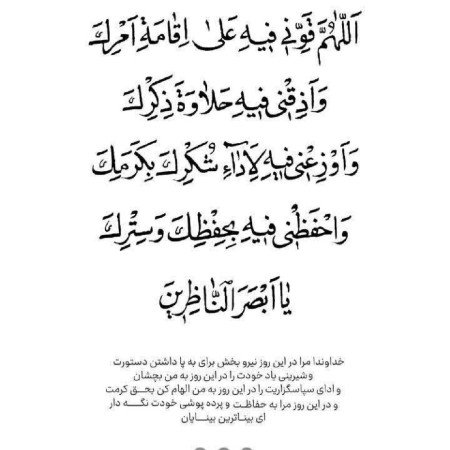 اَللّٰهُمَّ قَوِّنی فیهِ عَلیٰ اِقٰامَةِ اَمْرِكَ
وَاَذِقْنی فیهِ حَلاٰوَةَ ذِكْرِكَ
وَاَوْزِعْنی فیهِ لِاَدٰاءِ شُكْرِكَ بِكَرَمِكَ
وَاحْفَظْنی فیهِ بِحِفْظِكَ وَسِتْرِكَ
یٰا اَبْصَرَ النّٰاظِرینَ
خداوندا مرا در این روز نیرو بخش برای به پا داشتن دستورت
و شیرینی یاد خودت را در این روز به من بچشان
و ادای سپاسگزاریت را در این روز به من الهام کن بحق کرمت
و در این روز مرا به حفاظت و پرده پوشی خودت نگه دار
ای بیناترین بینایان